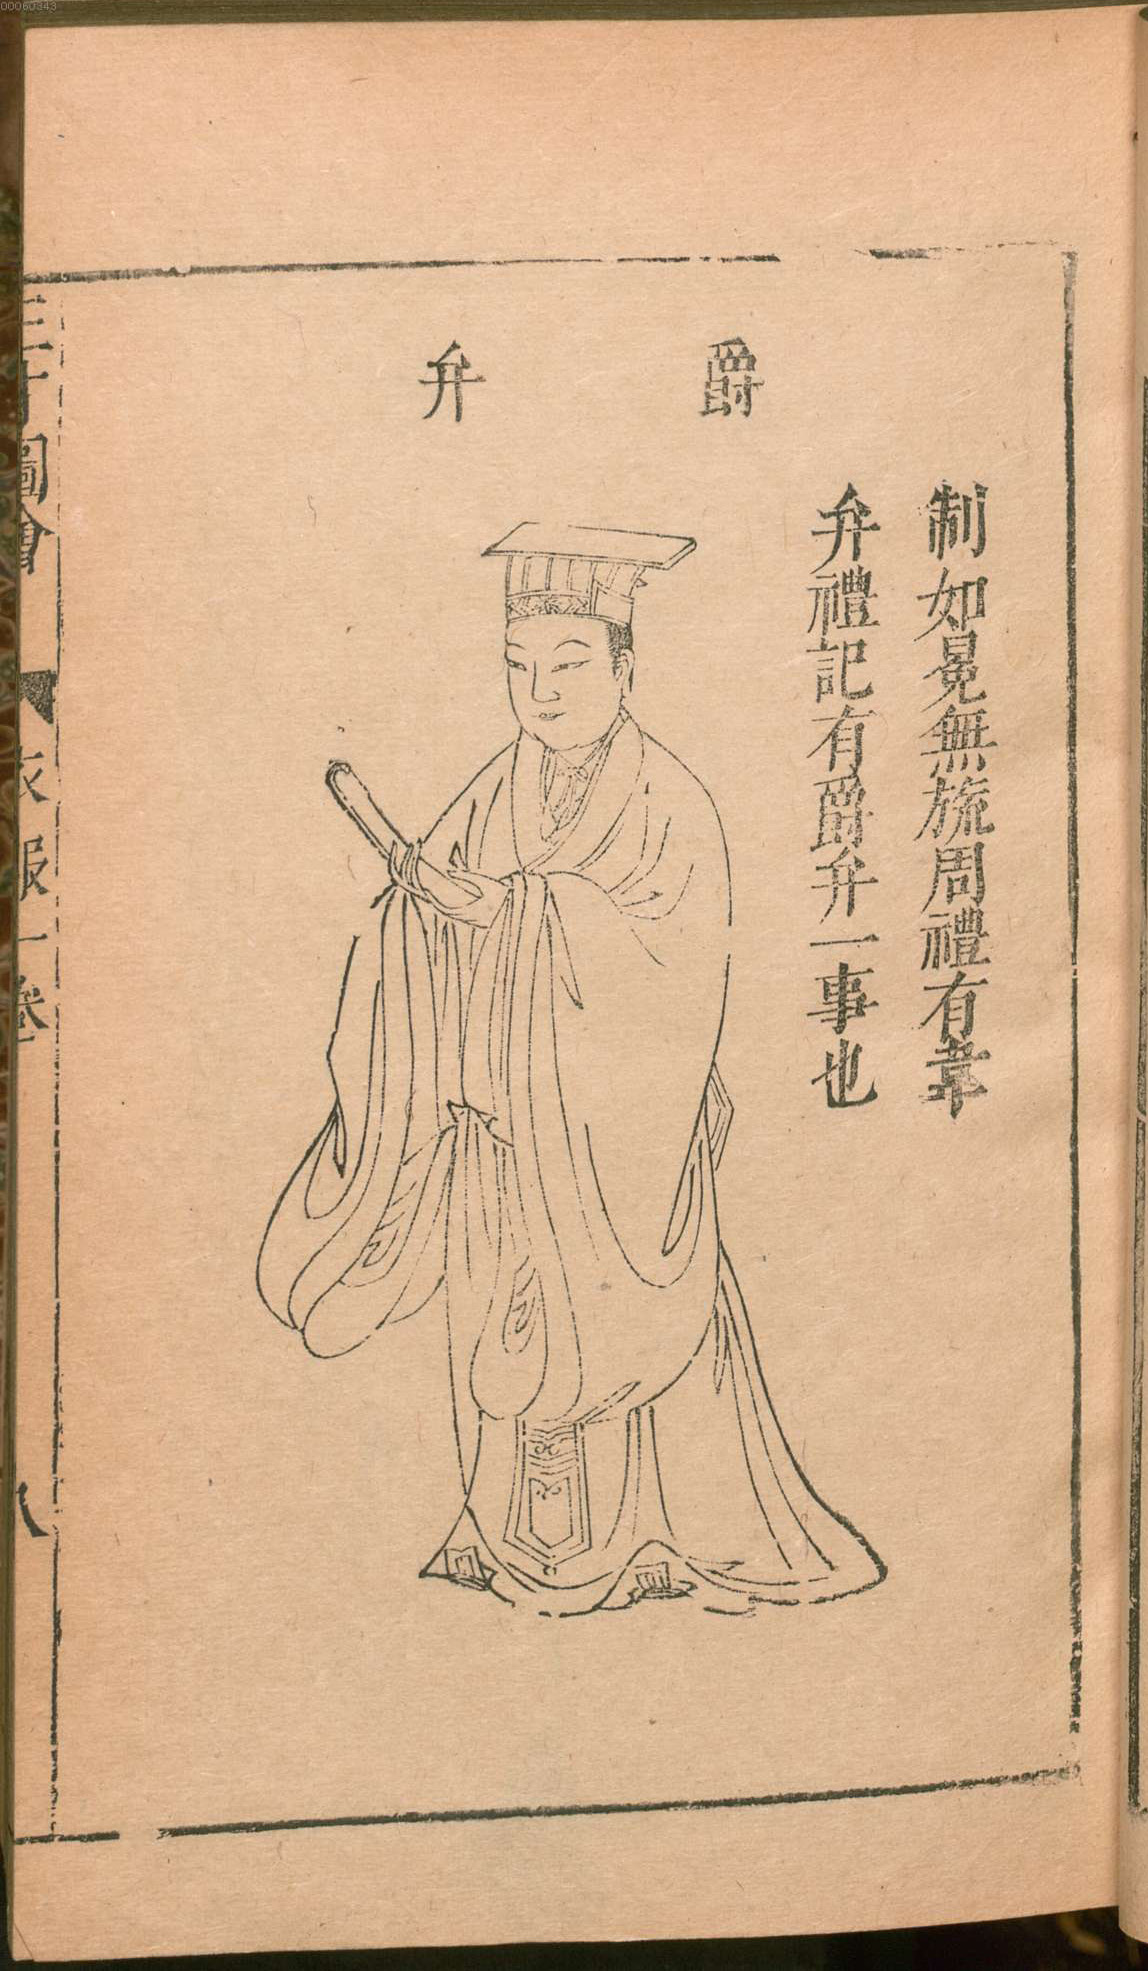 爵弁
制如冕無旒周禮有韋
弁禮記有爵弁一事也
三才圖會 衣服一卷 八
00060343